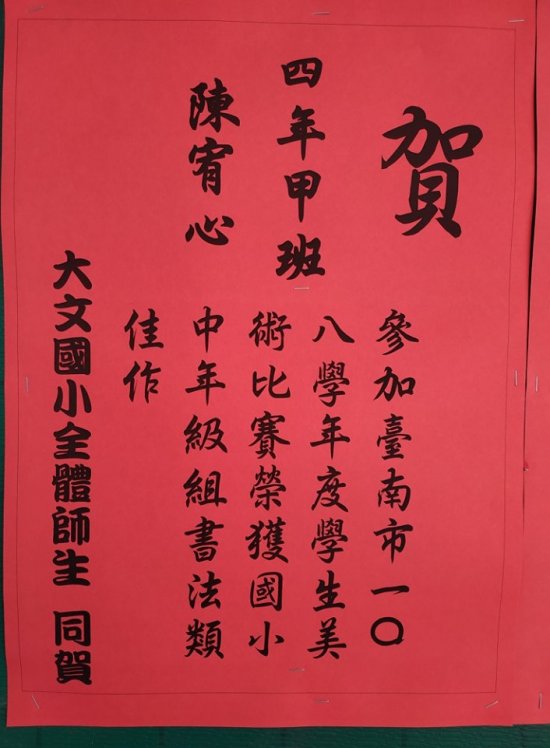 賀
四年甲班
陳宥心
參加臺南市一〇
八學年度學生美
術比賽榮獲國小
中年級組書法類
佳作
大文國小全體師生 同賀